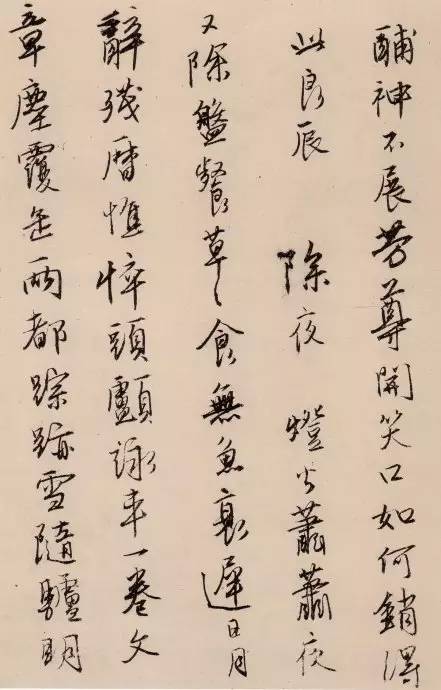 酺神不展芳尊開笑口如何銷得
此良辰 除夜 燈火蕭蕭夜
又除盤餐草々食無魚衰遲日月
辭殘曆憔悴頭顱詠車一卷文
章塵覆缶兩都踪跡雪隨驢明